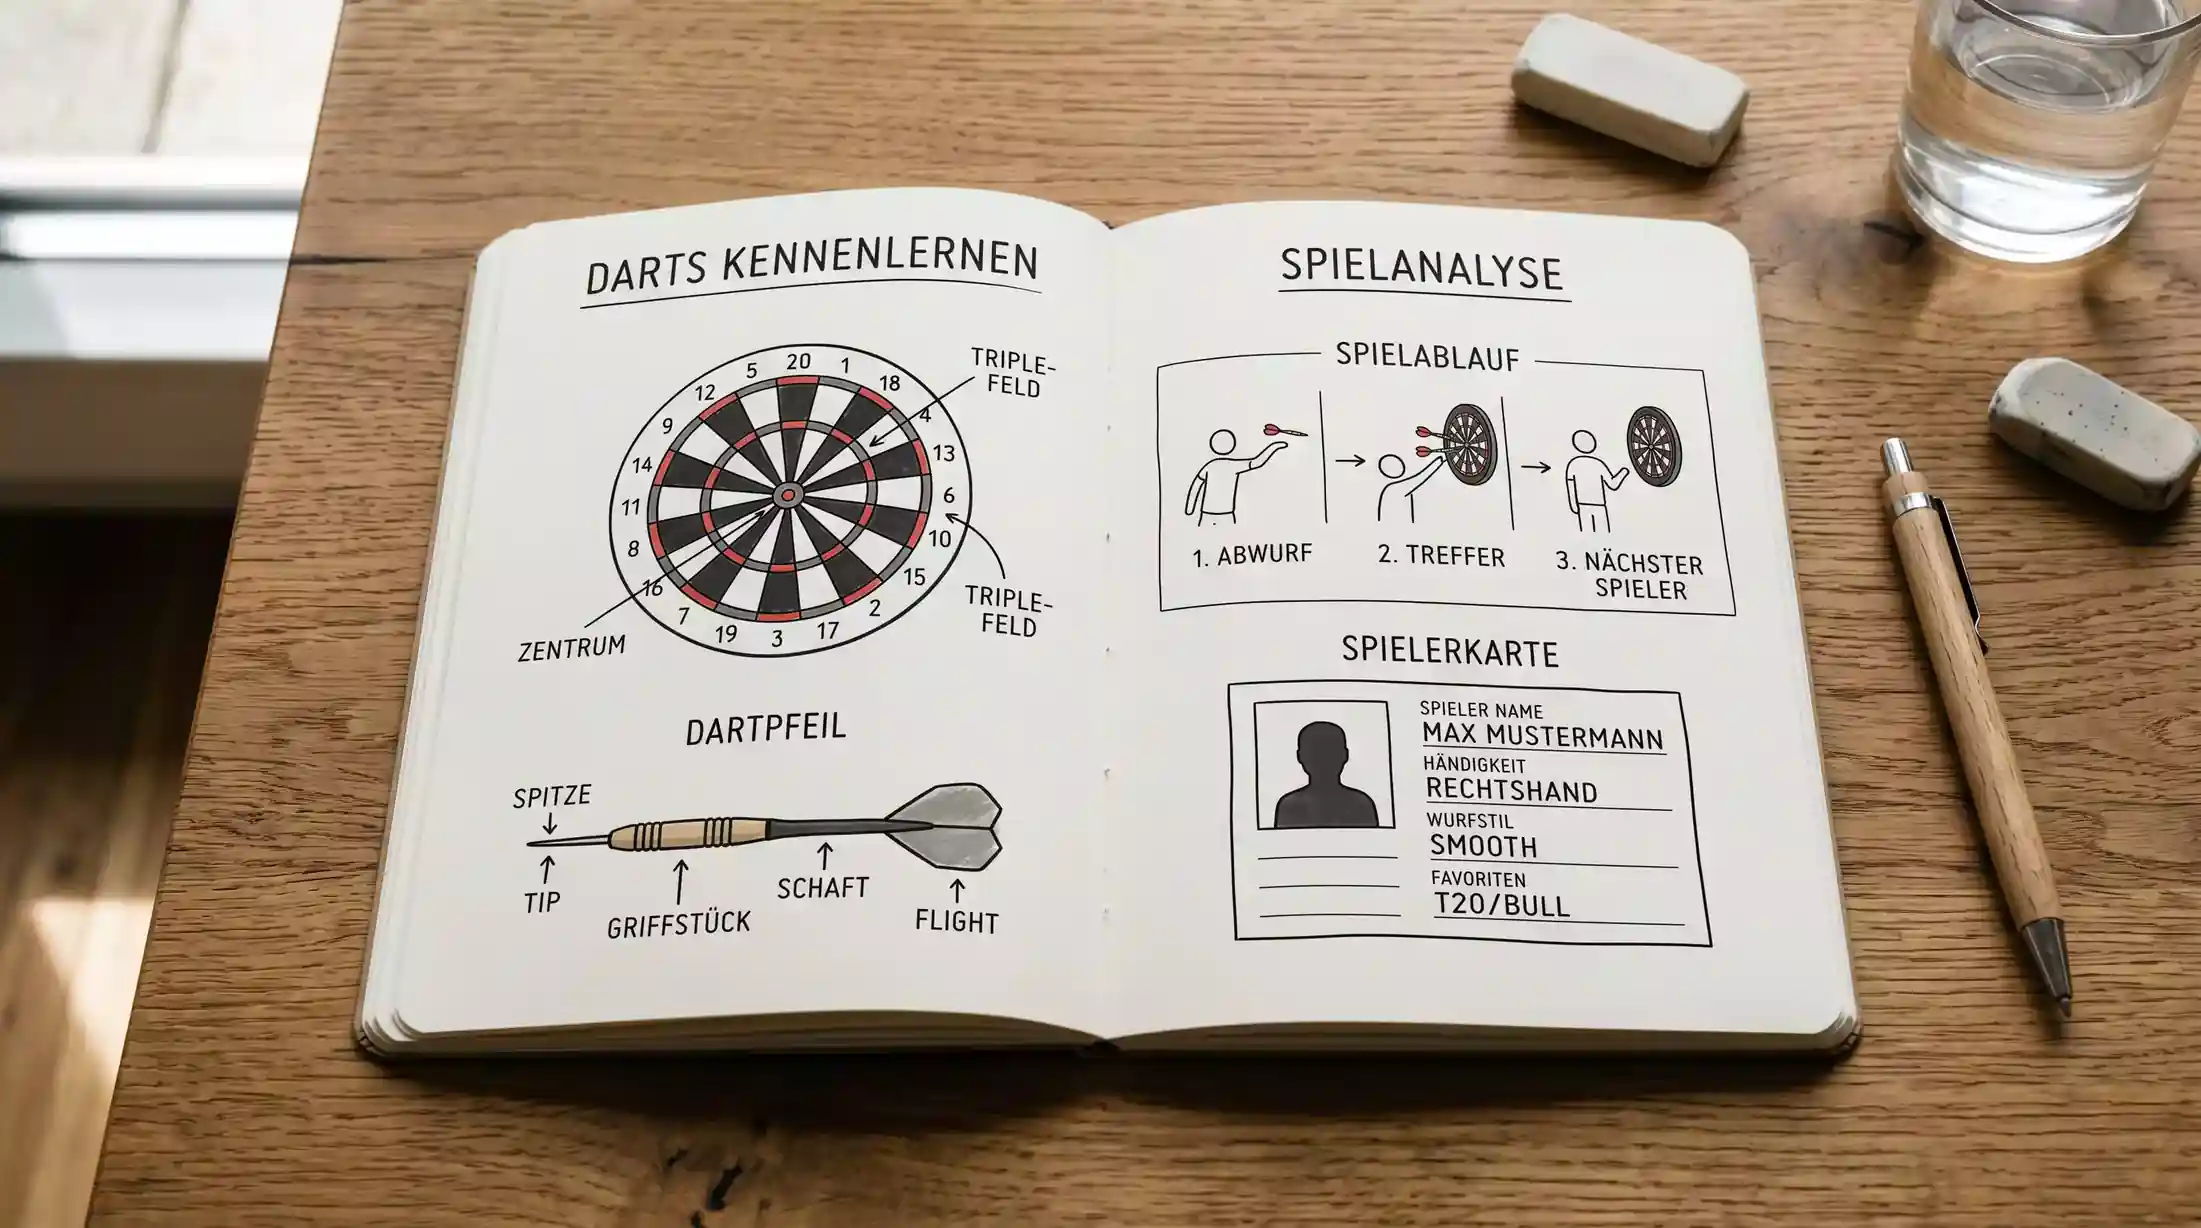 DARTS KENNENLERNEN
20
1
18
4
13
6
10
15
2
17
3
19
7
16
8
11
14
9
12
5
TRIPLE-
FELD
TRIPLE-
FELD
ZENTRUM
DARTPFEIL
SPITZE
TIP
GRIFFSTÜCK
SCHAFT
FLIGHT
SPIELANALYSE
SPIELABLAUF
1. ABWURF
2. TREFFER
3. NÄCHSTER
SPIELER
SPIELERKARTE
SPIELER NAME
MAX MUSTERMANN
HÄNDIGKEIT
RECHTSHAND
WURFSTIL
SMOOTH
FAVORITEN
T20/BULL